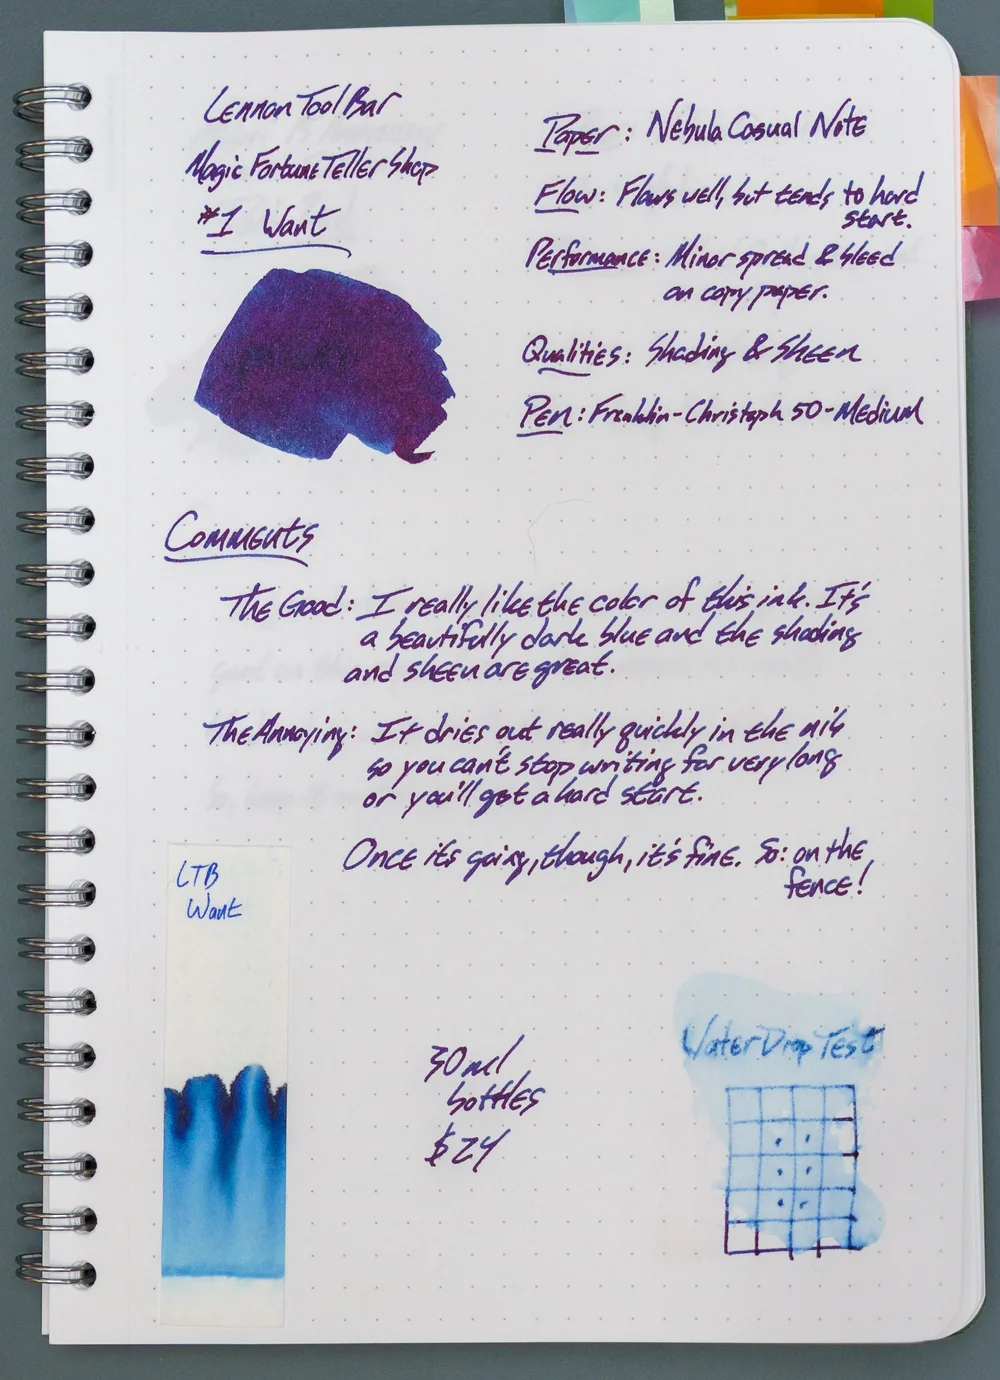 Lennon Tool Bar
Magic Fortune Teller Shop
#1 Want
Paper: Nebula Casual Note
Flow: Flows well, but tends to hard
start.
Performance: Minor spread & bleed
on copy paper.
Qualities: Shading & Sheen
Pen: Franklin-Christoph 50-Medium
Comments
The Good: I really like the color of this ink. It's
a beautifully dark blue and the shading
and sheen are great.
The Annoying: It dries out really quickly in the nib
so you can't stop writing for very long
or you'll get a hard start.
Once its going, though, it's fine. So: on the
fence!
LTB
Want
30ml
bottles
$24
Water Drop Test